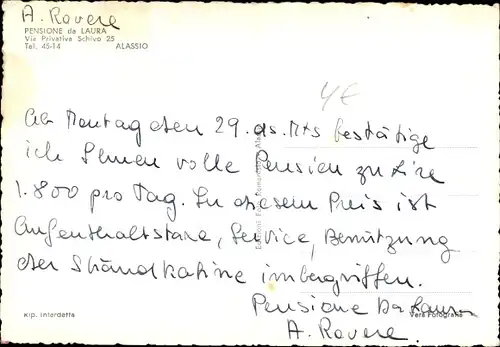 A. Rovere
PENSIONE da LAURA
Via Privativa Schivo 25
Tel. 45-14 ALASSIO
4€
Ab Montag den 29. ds. Mts bestätige
ich Ihnen volle Pension zu Lire
1.800 pro Tag. In diesem Preis ist
Aufenthaltstaxe, Service, Benützung
der Strandkabine imbegriffen.
Pensione Da Laura
A. Rovere.
Rip. Interdetta
Vera Fotografia